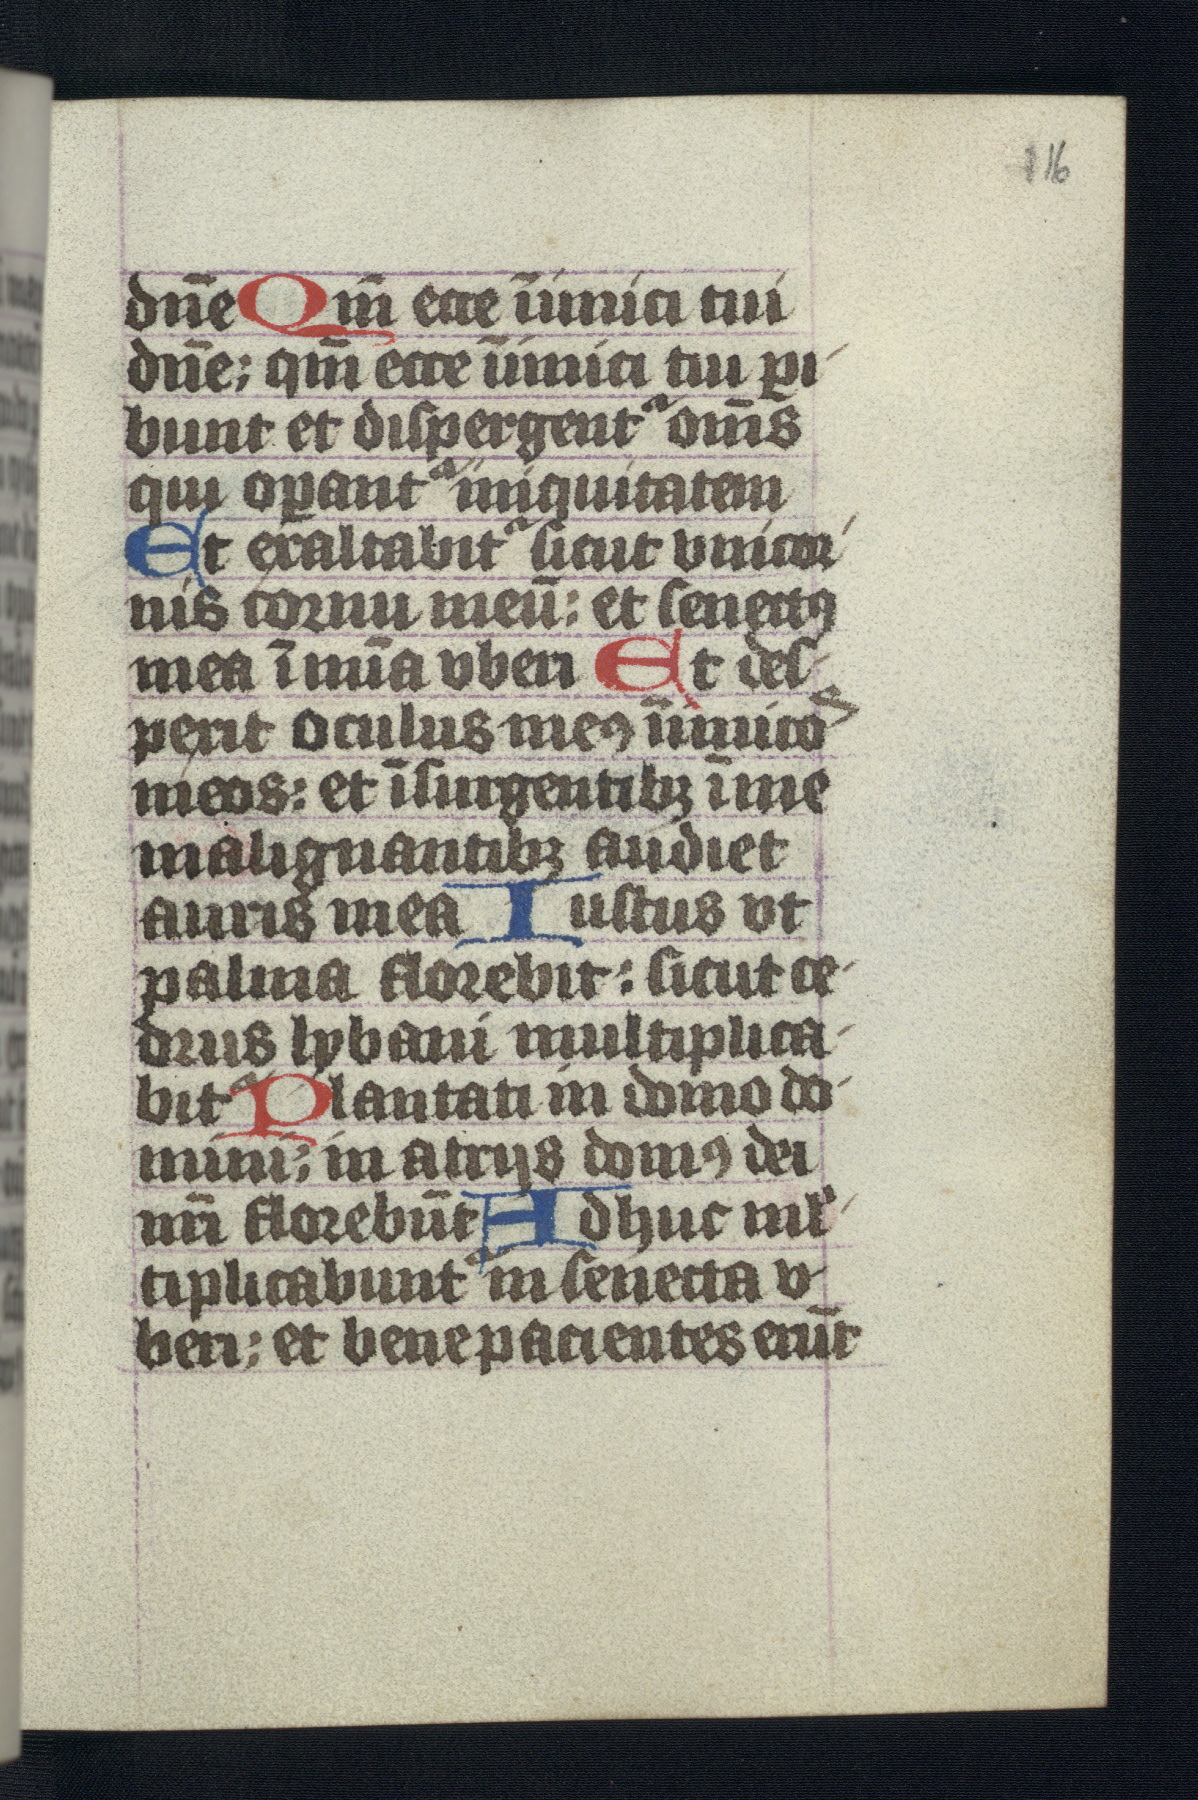 116
dn̄e Qm̄ ecce īimici tui
dn̄e; qm̄ ecce īimici tui ꝑi
bunt et dispergentᷓ om̄s
qui oꝑantᷓ iniquitatem
Et exaltabitᷓ sicut vnicor
nis cornu meū: et senectꝯ
mea ī mīa vberi Et des-
perit oculus meꝯ īimicoꝝ
meos: et īsurgentibꝫ ī me
malignantibꝫ audiet
auris mea Iustus vt
palma florebit: sicut ce-
drus lybani multiplica-
bitᷓ Plantati in domo do-
mini; in atrijs domꝯ dei
nr̄i florebūt Adhuc ml̓-
tiplicabuntᷓ in senecta v-
beri; et bene pacientes erūt